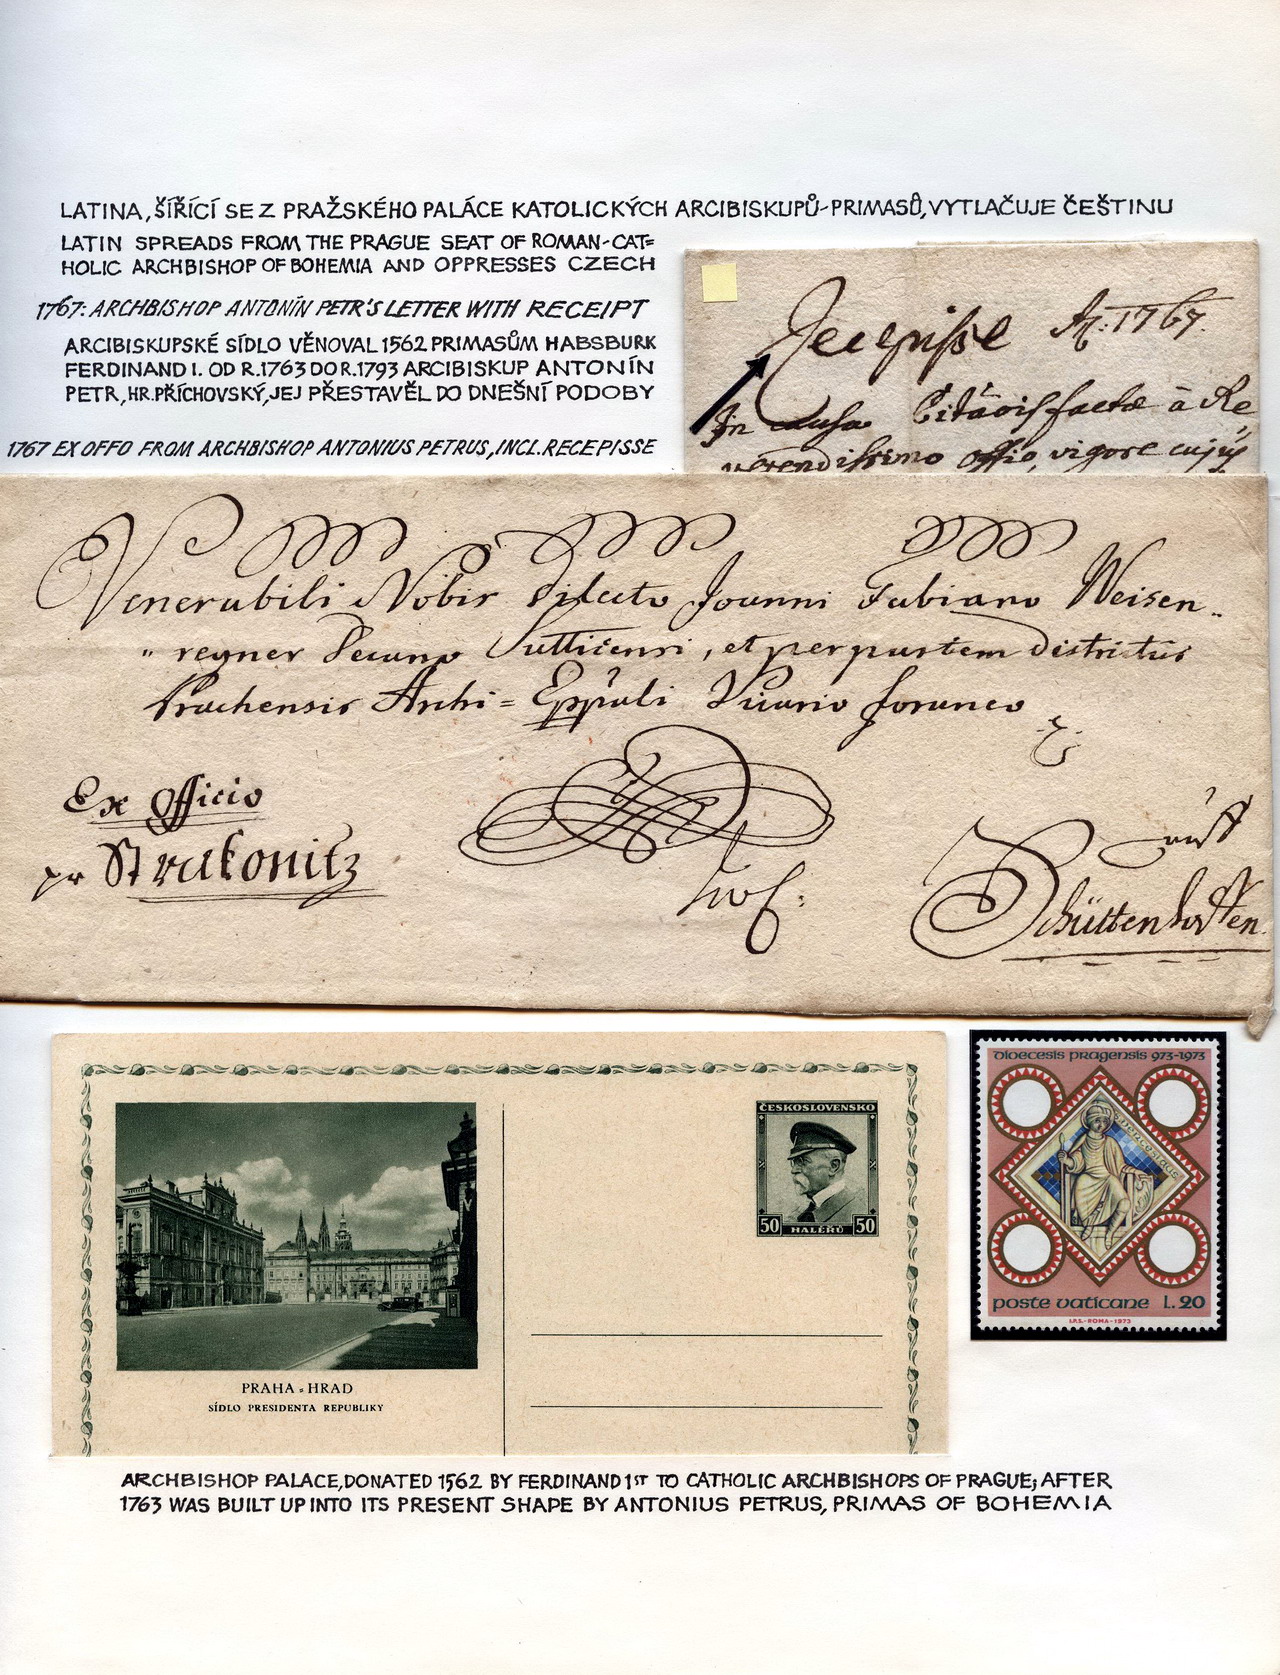 LATINA, ŠÍŘÍCÍ SE Z PRAŽSKÉHO PALÁCE KATOLICKÝCH ARCIBISKUPŮ-PRIMASŮ, VYTLAČUJE ČEŠTINU
LATIN SPREADS FROM THE PRAGUE SEAT OF ROMAN-CAT=
HOLIC ARCHBISHOP OF BOHEMIA AND OPPRESSES CZECH
1767: ARCHBISHOP ANTONÍN PETR'S LETTER WITH RECEIPT
ARCIBISKUPSKÉ SÍDLO VĚNOVAL 1562 PRIMASŮM HABSBURK
FERDINAND I. OD R.1763 DO R.1793 ARCIBISKUP ANTONÍN
PETR, HR. PŘÍCHOVSKÝ, JEJ PŘESTAVĚL DO DNEŠNÍ PODOBY
1767 EX OFFO FROM ARCHBISHOP ANTONIUS PETRUS, INCL. RECEPISSE
Recepisse Aō: 1767.
In causa factæ à Re
verendissimo Offio, vigore cujus
Venerabili Nobis Dilecto Joanni Fabiano Weisen=
" regner Decano Suttičensi, et per partem Districtus
Prachensis Archi= Eppāli Vicario foraneo
Ex Officio
pr Strakonitz
Schüttenhoffen.
dioecesis pragensis 973-1973
poste vaticane L.20
I.P.S.-ROMA-1973
ČESKOSLOVENSKO
50 HALÉŘŮ 50
PRAHA = HRAD
SÍDLO PRESIDENTA REPUBLIKY
ARCHBISHOP PALACE, DONATED 1562 BY FERDINAND 1ST TO CATHOLIC ARCHBISHOPS OF PRAGUE; AFTER
1763 WAS BUILT UP INTO ITS PRESENT SHAPE BY ANTONIUS PETRUS, PRIMAS OF BOHEMIA